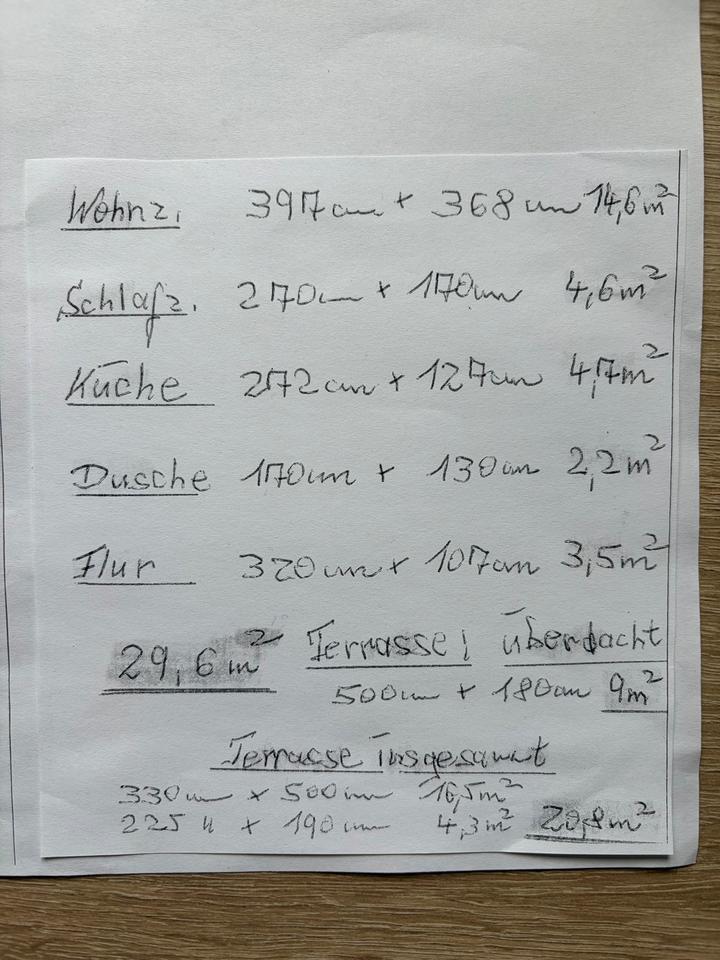 Wohnz. 397cm + 368cm 14,6m²
Schlafz. 270cm + 170cm 4,6m²
Küche 272cm + 127cm 4,7m²
Dusche 170cm + 130cm 2,2m²
Flur 320cm + 107cm 3,5m²
29,6m² Terrasse! überdacht
500cm + 180cm 9m²
Terrasse insgesamt
330cm x 500cm 16,5m²
225 " x 190cm 4,3m² 20,8m²